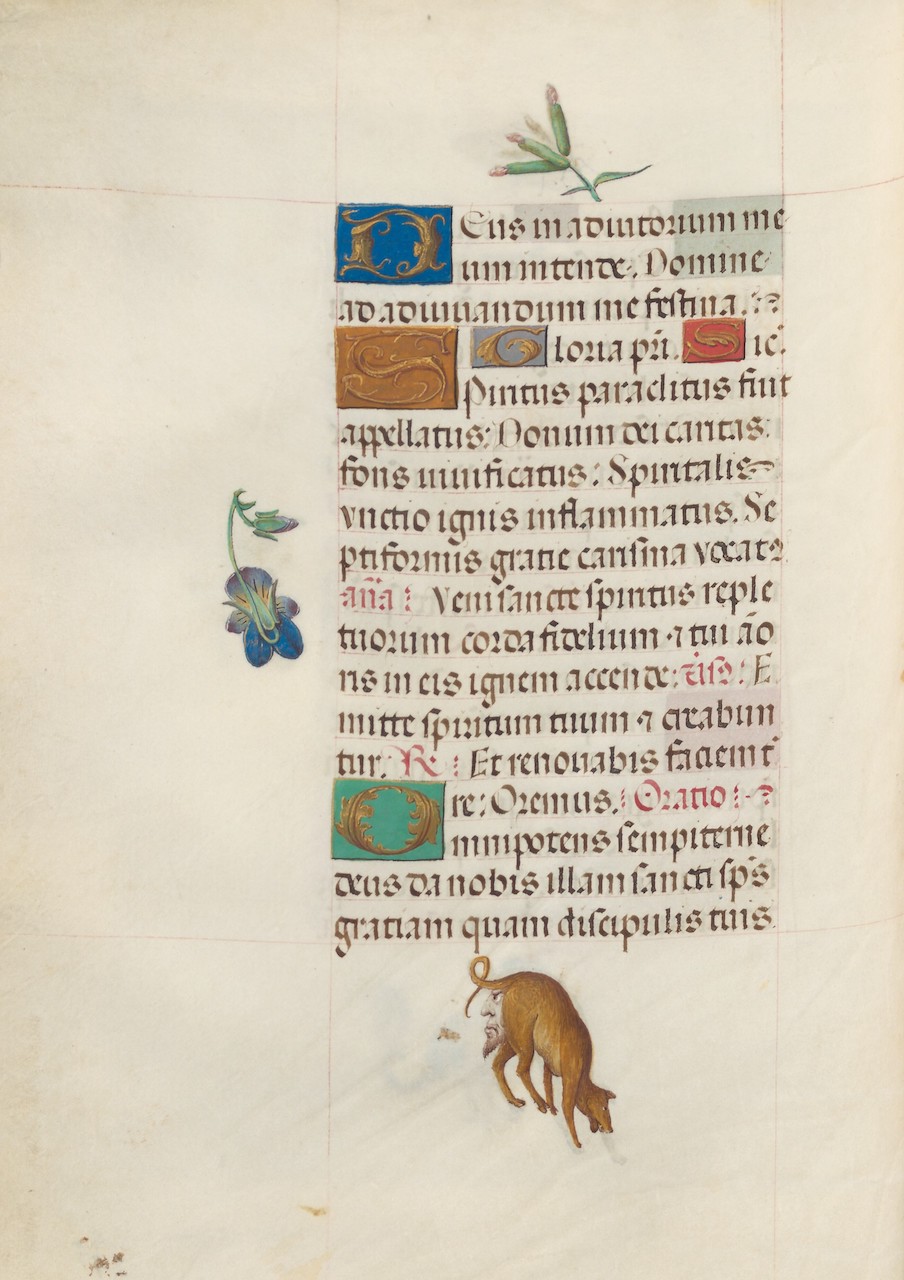 Deus in adiutorium me
um intende. Domine
ad adiuuandum me festina.
Gloria pr̃i. Sic̃.
Spiritus paraclitus fuit
appellatus: Donum dei caritas:
fons uiuificatus: Spiritalis
vnctio ignis inflammatus. Se
ptiformis gratie carisma vocatꝰ
añã: Veni sancte spiritus reple
tuorum corda fidelium ⁊ tui ão
ris in eis ignem accende: E
mitte spiritum tuum ⁊ creabun
tur. R: Et renouabis faciem t̃
re: Oremus: Oratio:
Omnipotens sempiterne
deus da nobis illam sancti sp̃s
gratiam quam discipulis tuis